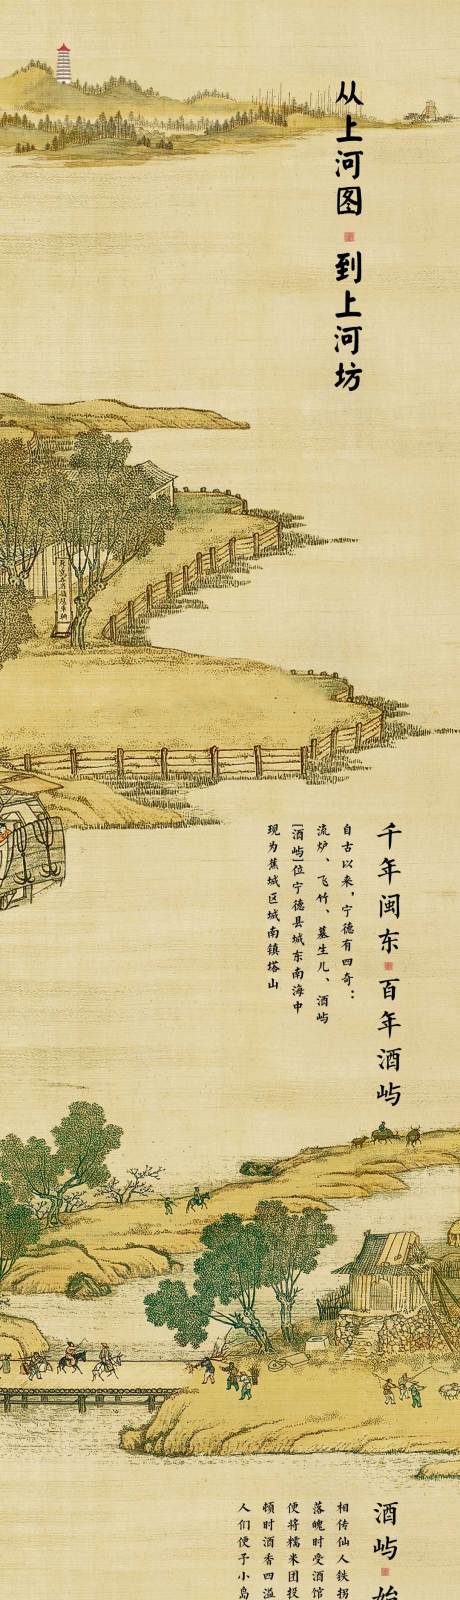 从上河图
到上河坊
千年闽东
百年酒屿
自古以来，宁德有四奇：
流炉、飞竹、墓生儿、酒屿
[酒屿]位宁德县城东南海中
现为蕉城区城南镇塔山
酒屿
相传仙人鉄拐
落魄时受酒馆
便将糯米团投
顿时酒香四溢
人们便予小岛